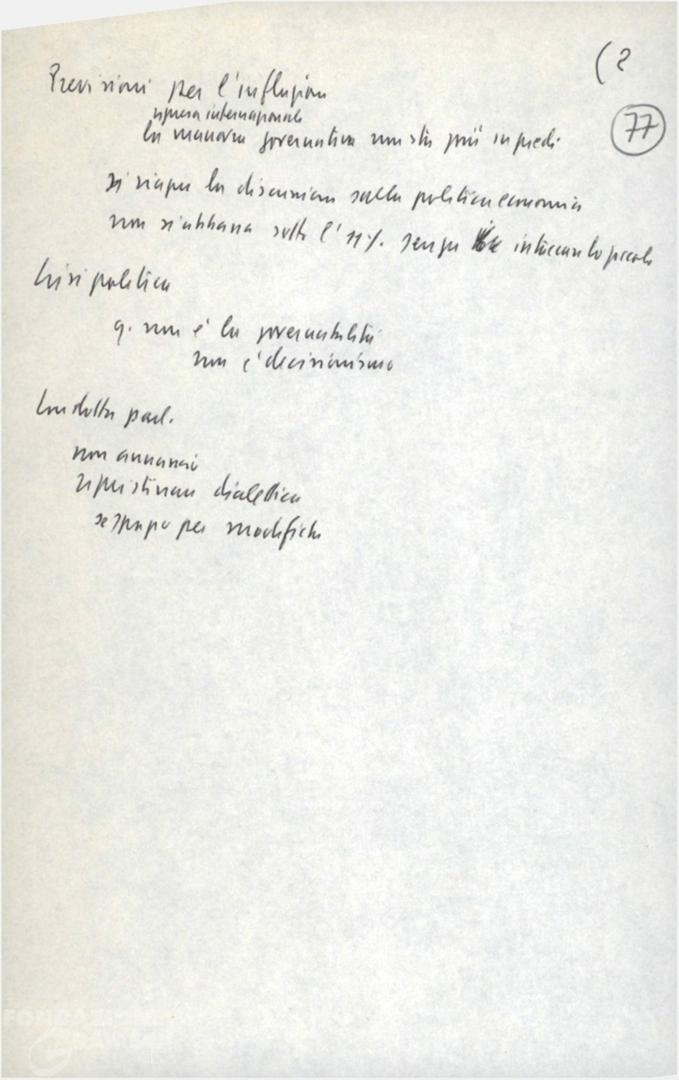 (2
77
Previsioni per l'inflazion
ripresa internazionale
la manovra governativa non sta più in piedi
si riapre la discussione sulla politica economia
non si abbassa sotto l'11%. senza intaccare lo
Crisi politica
q. non è la governabilità
non è decisionismo
Condotta parl.
non annunci
ripristinare dialettica
se spazio per modifiche
FONDAZIONE
GRAMSCI